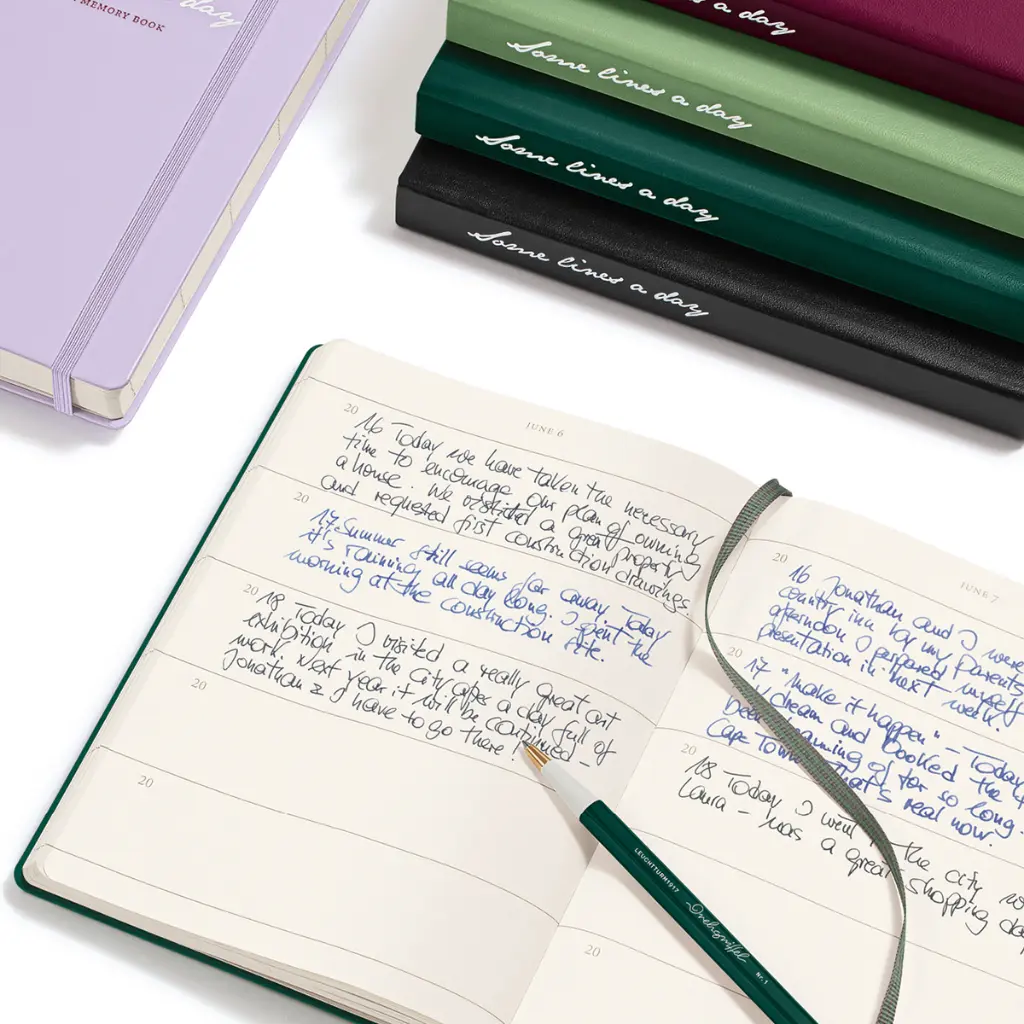 day
MEMORY BOOK
s a day
Some lines a day
Some lines a day
Some lines a day
JUNE 6
20 16 Today we have taken the necessary
time to encourage our plan of owning
a house. We visited a great property
and requested first construction drawings.
20 17 Summer still seems far away. Today
it's raining all day long. I spent the
morning at the construction site.
20 18 Today I visited a really great art
exhibition in the city after a day full of
work. Next year it will be continued –
Jonathan & I have to go there!
20
20
JUNE 7
20 16 Jonathan and I were
country inn by my parents
afternoon I prepared myself
presentation in next week.
20 17 "make it happen" – Today
dream and booked the
been dreaming of for so long.
Cape Town that's real now.
20 18 Today I went the city
Laura – was a great shopping
20
LEUCHTTURM1917
Drehgriffel
Nr. 1